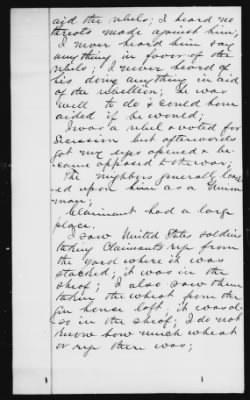 aid the rebels; I heard no
threats made against him,
I never heard him say
any thing in favor of the
rebels; I never heard of
his doing anything in aid
of the rebellion; he was
well to do & could have
aided if he would;
I was a rebel & voted for
Secession but afterwards
got my eyes opened & be-
came opposed to the war;
The neighbors generally look
ed upon him as a Union
man;
Claimant had a large
place.
I saw United States soldiers
taking Claimants rye from
the yard where it was
stacked; it was in the
sheaf; I also saw them
taking the wheat from the
Gin house loft, it was al-
so in the sheaf; I do not
know how much wheat
or rye there was;